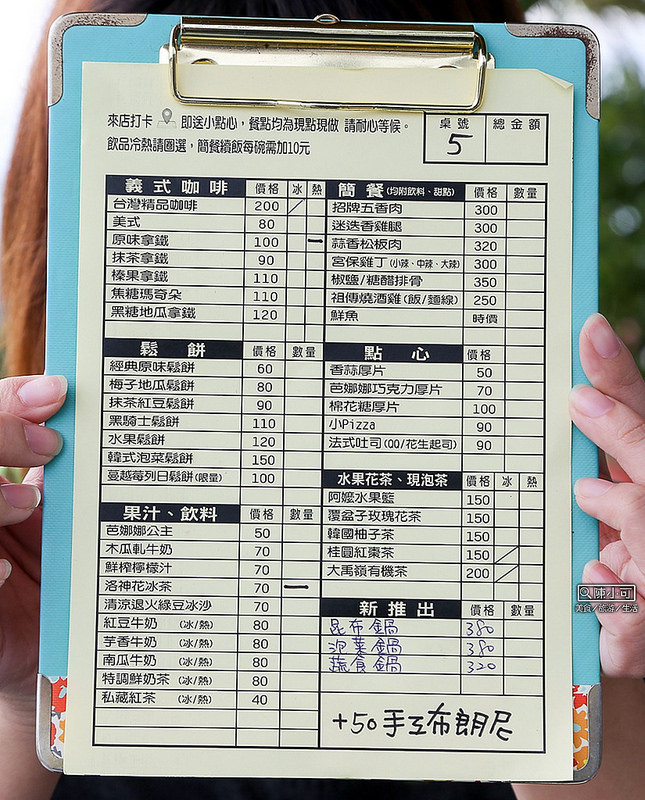 來店打卡 即送小點心，餐點均為現點現做 請耐心等候。
飲品冷熱請圈選，簡餐續飯每碗需加10元
桌號 總金額
5
義式咖啡 價格 冰 熱
台灣精品咖啡 200
美式 80
原味拿鐵 100 一
抹茶拿鐵 90
榛果拿鐵 110
焦糖瑪奇朵 110
黑糖地瓜拿鐵 120
鬆餅 價格 數量
經典原味鬆餅 60
梅子地瓜鬆餅 80
抹茶紅豆鬆餅 90
黑騎士鬆餅 110
水果鬆餅 120
韓式泡菜鬆餅 150
蔓越莓列日鬆餅(限量) 100
果汁、飲料 價格 數量
芭娜娜公主 50
木瓜軋牛奶 70
鮮榨檸檬汁 70
洛神花冰茶 70 一
清涼退火綠豆冰沙 70
紅豆牛奶 (冰/熱) 80
芋香牛奶 (冰/熱) 80
南瓜牛奶 (冰/熱) 80
特調鮮奶茶 (冰/熱) 80
私藏紅茶 (冰/熱) 40
簡餐(均附飲料、甜點) 價格 數量
招牌五香肉 300
迷迭香雞腿 300
蒜香松板肉 320
宮保雞丁(小辣、中辣、大辣) 300
椒鹽/糖醋排骨 350
祖傳燒酒雞(飯/麵線) 250
鮮魚 時價
點心 價格
香蒜厚片 50
芭娜娜巧克力厚片 70
棉花糖厚片 100
小Pizza 90
法式吐司(QQ/花生起司) 90
水果花茶、現泡茶 價格 冰 熱
阿嬤水果籃 150
覆盆子玫瑰花茶 150
韓國柚子茶 150
桂圓紅棗茶 150
大禹嶺有機茶 200
新推出 價格 數量
昆布鍋 380
泡菜鍋 380
蔬食鍋 320
+50 手工布朗尼
陳小可
美食/旅遊/生活